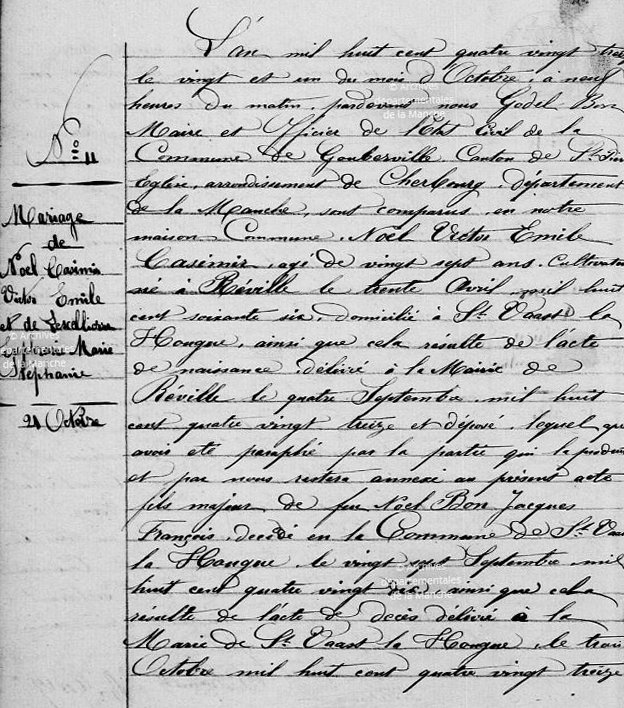 N° 11
Mariage
de
Noel Casimir
Victor Emile
et de
Marie
Stéphanie
21 Octobre
L'an mil huit cent quatre vingt treize
le vingt et un du mois d'Octobre, a neuf
heures du matin, pardevant nous Godel Bon
Maire et Officier de l'Etat Civil de la
Commune de Gouberville Canton de St Pierre
Eglise, arrondissement de Cherbourg, département
de la Manche, sont comparus en notre
maison Commune, Noël Victor Emile
Casimir, agé de vingt sept ans, Cultivateur
né à Réville le trente Avril mil huit
cent soixante six, domicilié à St Vaast la
Hougue, ainsi que cela résulte de l'acte
de naissance délivré à la Mairie de
Réville le quatre Septembre mil huit
cent quatre vingt treize et déposé, lequel
avoir été paraphé par la partie qui la
et par nous restera annexé au présent acte
fils majeur de feu Noel Bon Jacques
François, décédé en la Commune de St Vaast
la Hougue, le vingt sept Septembre mil
huit cent quatre vingt ainsi que cela
résulte de l'acte de décès délivré à la
Mairie de St Vaast la Hougue, le trois
Octobre mil huit cent quatre vingt treize
© Archives
départementales
de la Manche
© Archives
départementales
de la Manche
© Archives
départementales
de la Manche